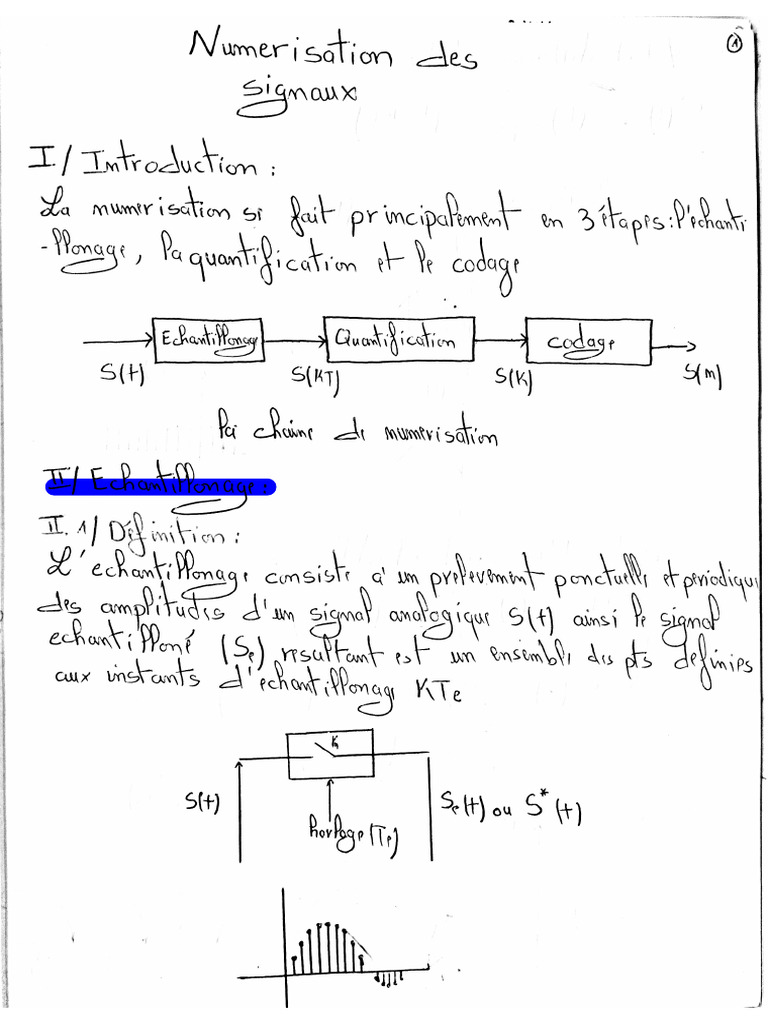 ①
Numerisation des
signaux
I/ Introduction :
La numerisation se fait principalement en 3 étapes : l'échanti
-llonage, la quantification et le codage
Echantillonag Quantification codage
S(t) S(KT) S(K) S(m)
la chaine de numerisation
II/ Echantillonage :
II.1/ Définition :
L'echantillonage consiste à un prelevement ponctuelle et périodique
des amplitudes d'un signal analogique S(t) ainsi le signal
echantilloné (Se) resultant est un ensemble des pts definies
aux instants d'echantillonage KTe
K
S(t) Se(t) ou S*(t)
horloge (Te)